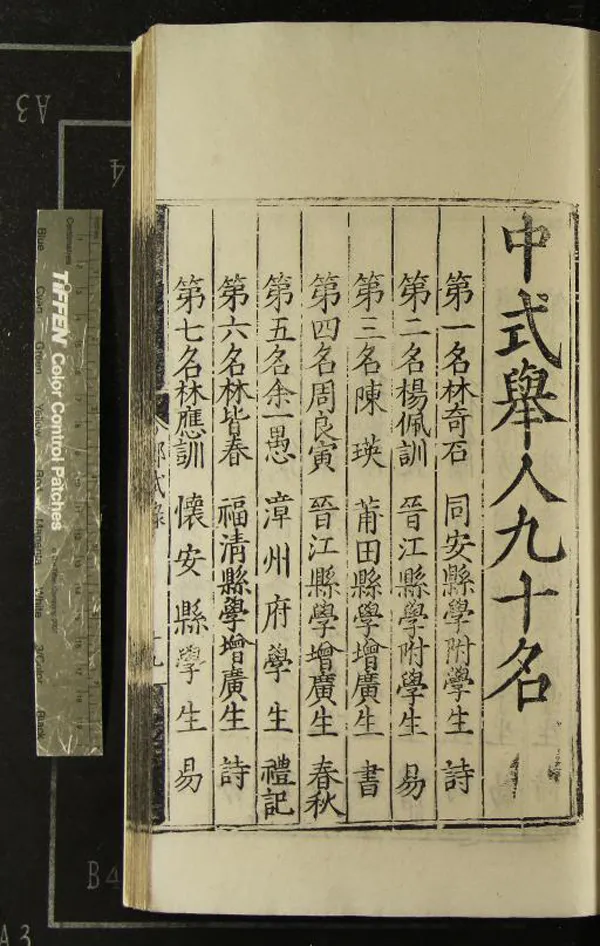 中式舉人九十名
第一名林奇石 同安縣學附學生 詩
第二名楊佩訓 晉江縣學附學生 易
第三名陳瑛 莆田縣學增廣生 書
第四名周良寅 晉江縣學增廣生 春秋
第五名余一愚 漳州府學生 禮記
第六名林皆春 福清縣學增廣生 詩
第七名林應訓 懷安縣學生 易
試錄
十九
TIFFEN Color Control Patches
Blue
Cyan
Green
Yellow
Red
Magenta
White
3/Color
Black
A3
4
B4
A3